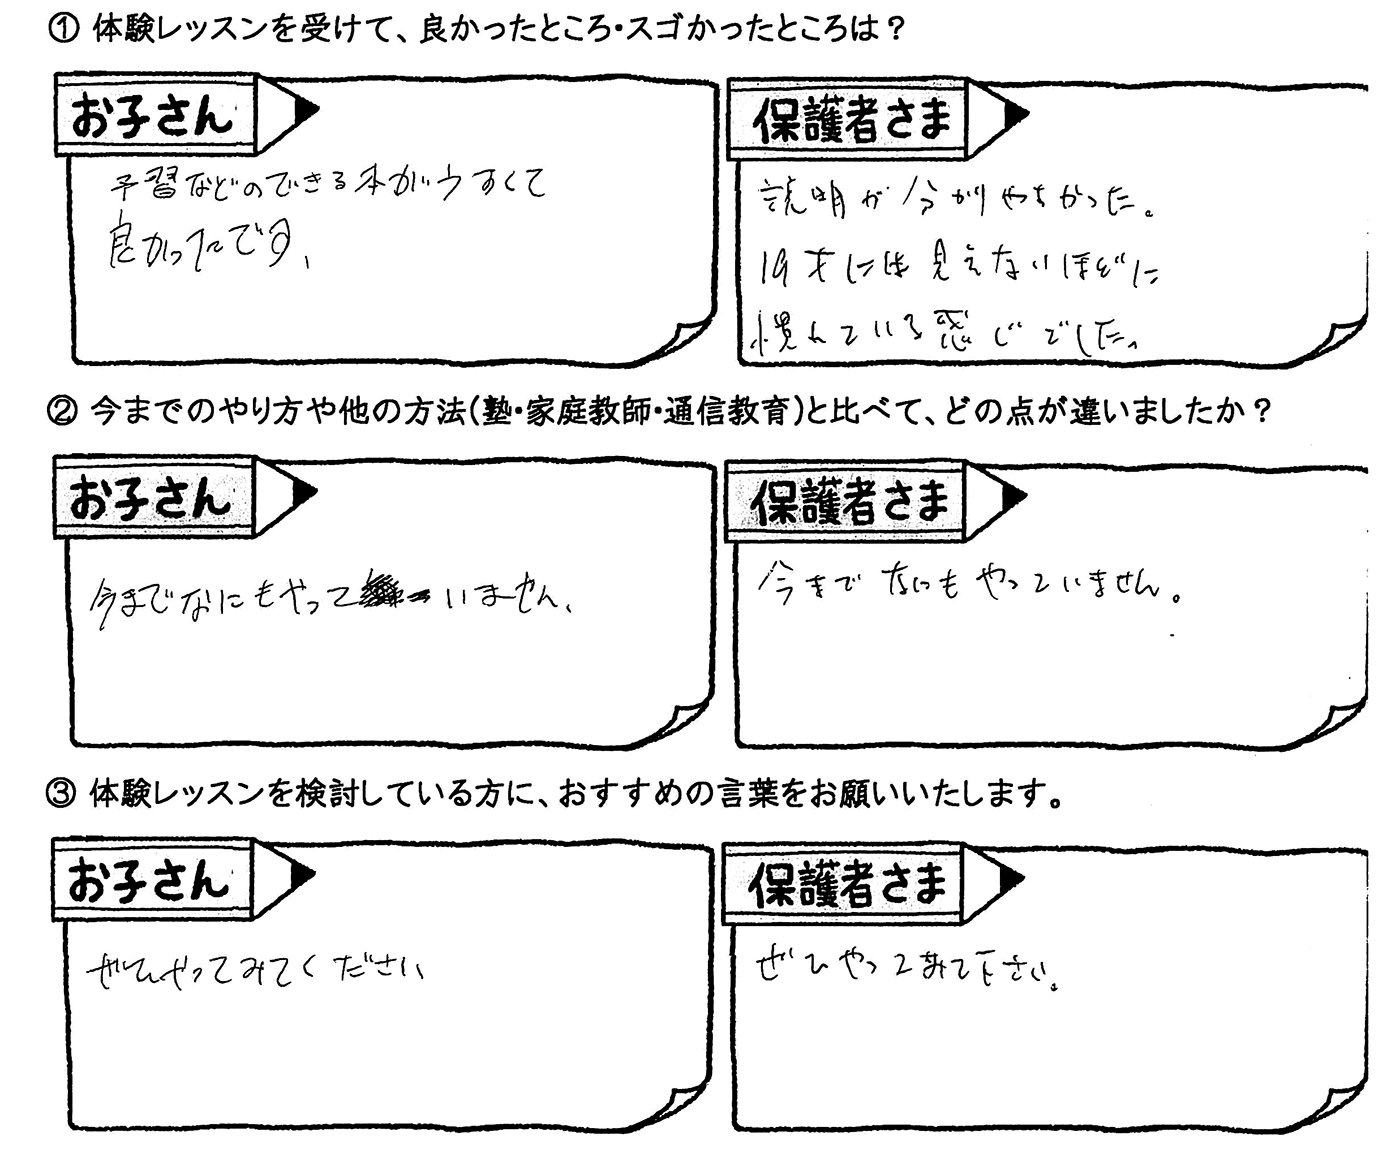 ① 体験レッスンを受けて、良かったところ・スゴかったところは？
お子さん
予習などのできる本がうすくて
良かったです、
保護者さま
説明が分かりやすかった。
19才には見えないほどに
慣れている感じでした。
② 今までのやり方や他の方法(塾・家庭教師・通信教育)と比べて、どの点が違いましたか？
お子さん
今までなにもやって いません、
保護者さま
今まで なにも やっていません。
③ 体験レッスンを検討している方に、おすすめの言葉をお願いいたします。
お子さん
ぜひやってみてください
保護者さま
ぜひやってみて下さい。